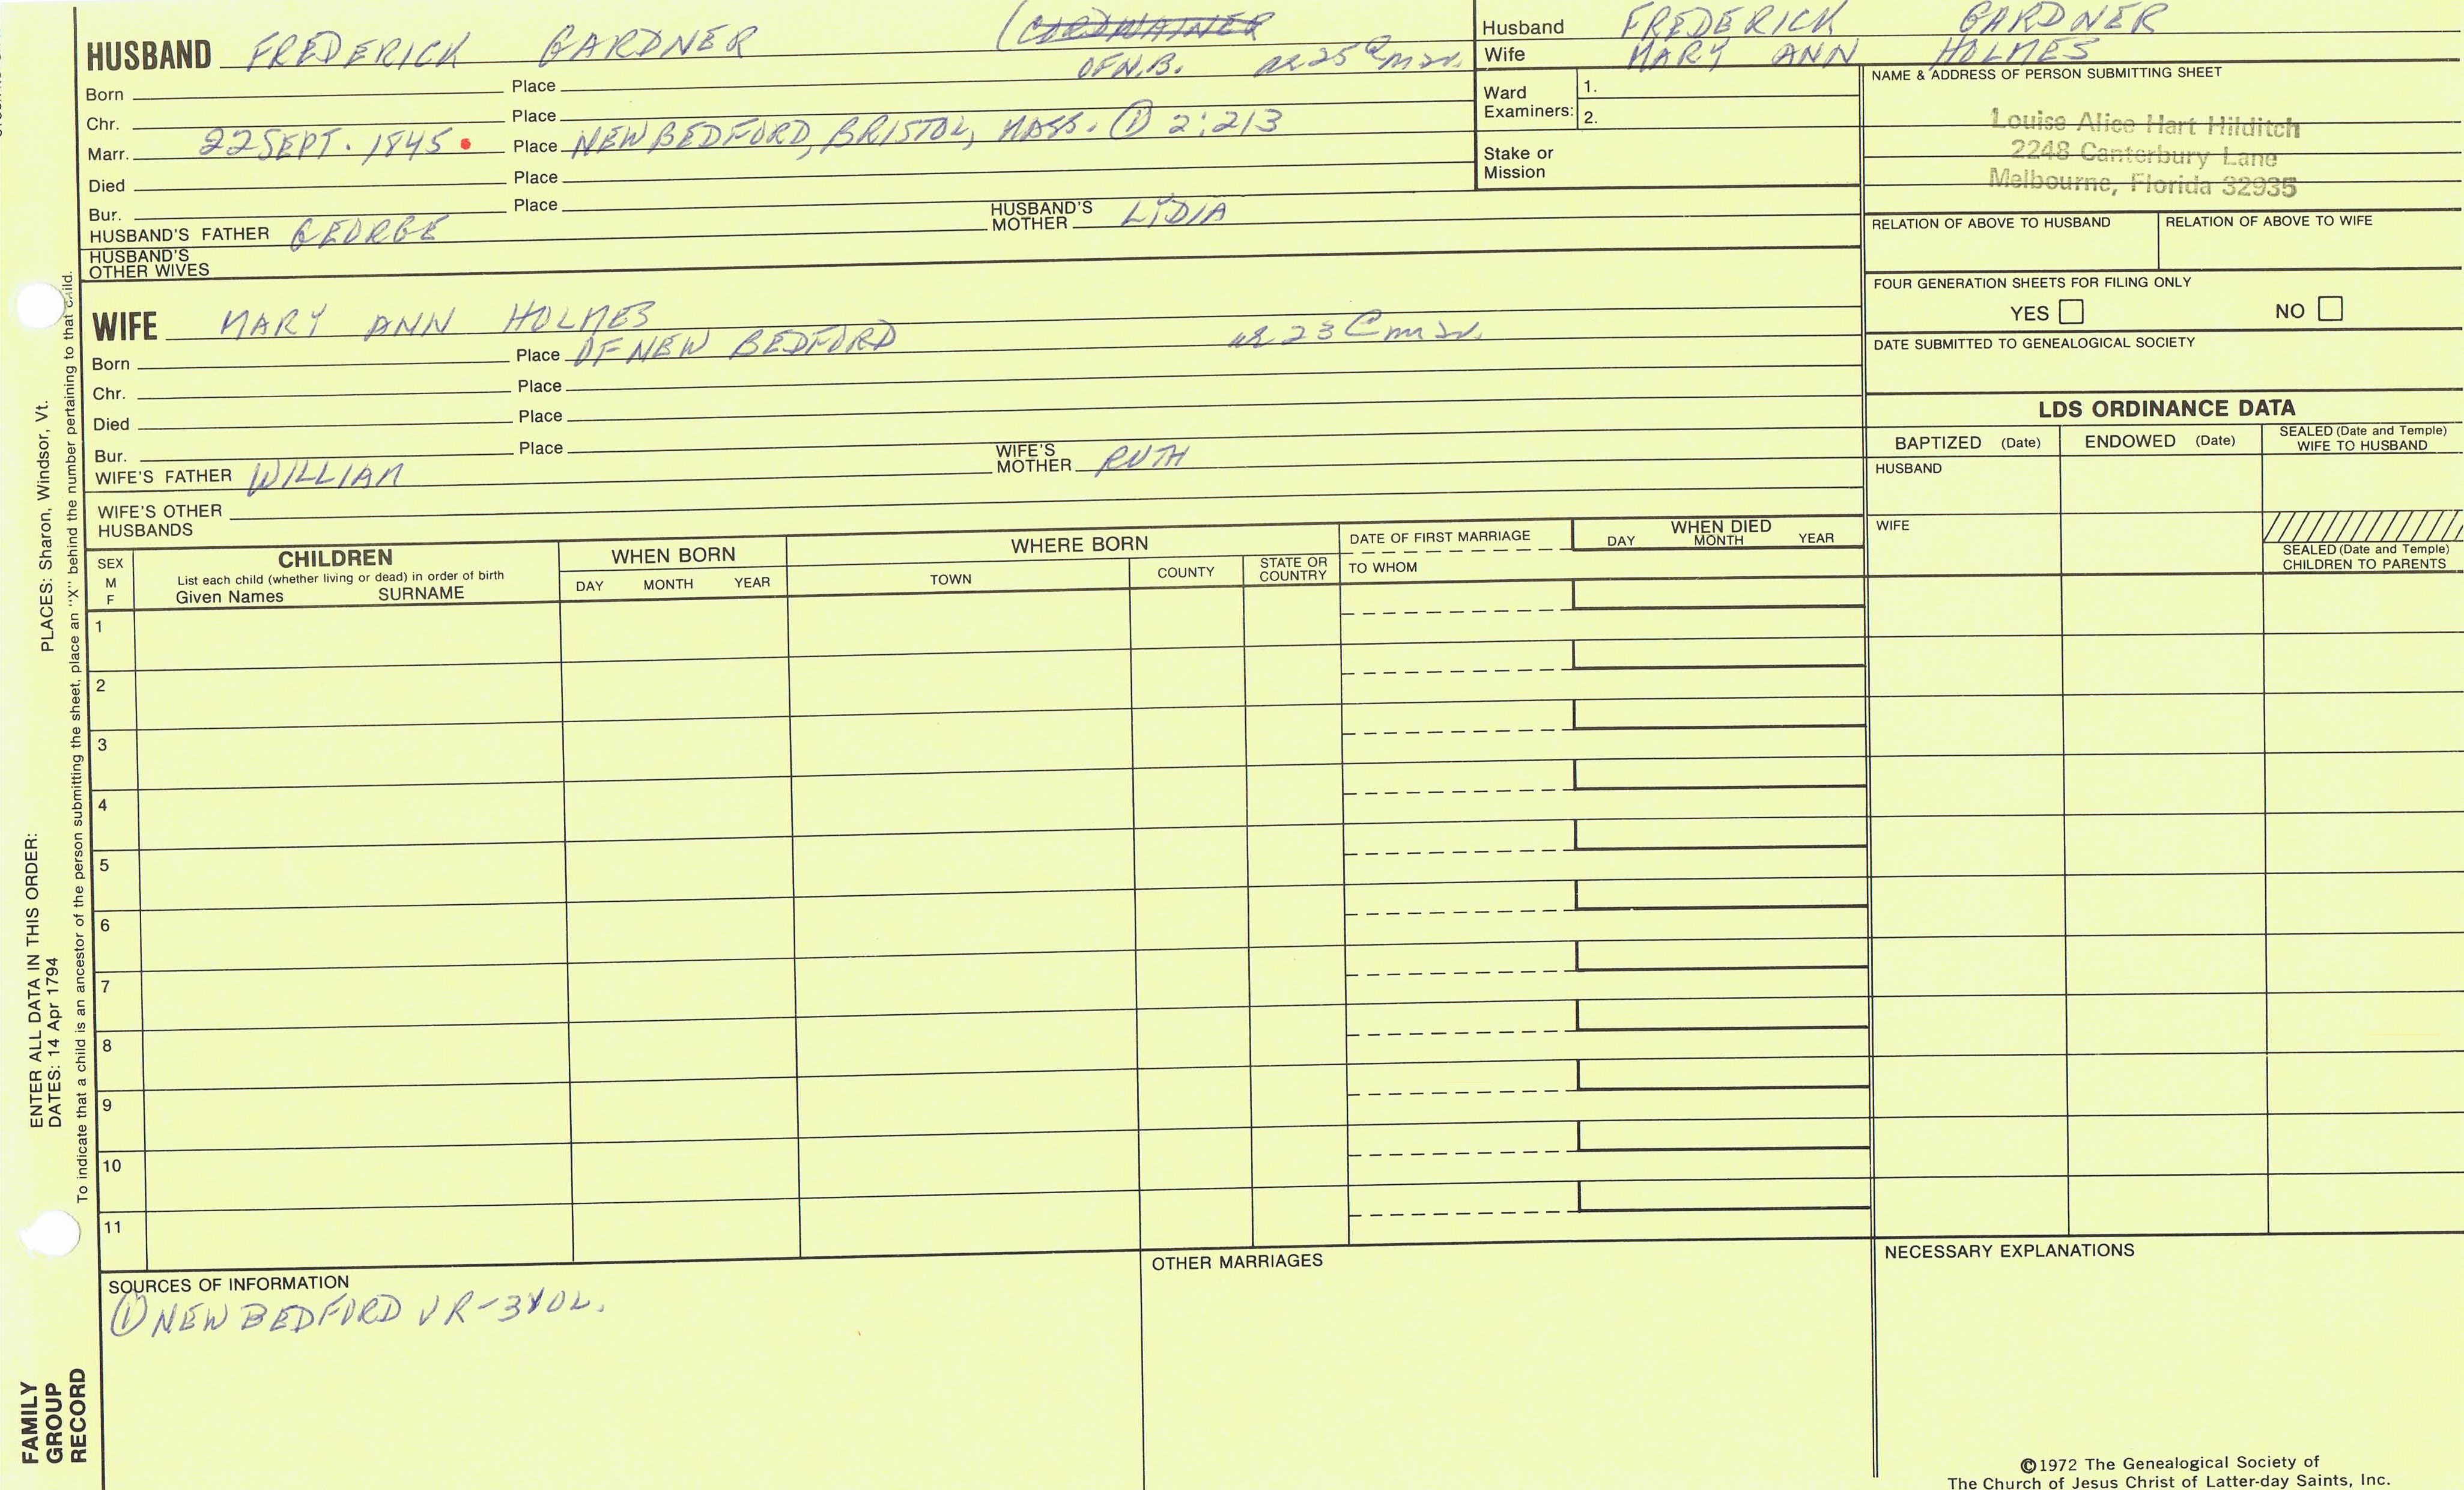 HUSBAND FREDERICK GARDNER (CORDWAINER
OF N.B. ae 25 @ mar.
Born Place
Chr. Place
Marr. 22 SEPT. 1845. Place NEW BEDFORD, BRISTOL, MASS. ① 2:213
Died Place
Bur. Place
HUSBAND'S FATHER GEORGE HUSBAND'S MOTHER LYDIA
HUSBAND'S
OTHER WIVES
WIFE MARY ANN HOLMES
Born Place OF NEW BEDFORD ae 23 @ mar.
Chr. Place
Died Place
Bur. Place
WIFE'S FATHER WILLIAM WIFE'S MOTHER RUTH
WIFE'S OTHER
HUSBANDS
Husband FREDERICK GARDNER
Wife MARY ANN HOLMES
Ward
Examiners: 1.
2.
Stake or
Mission
NAME & ADDRESS OF PERSON SUBMITTING SHEET
Louise Alice Hart Hilditch
2248 Canterbury Lane
Melbourne, Florida 32935
RELATION OF ABOVE TO HUSBAND RELATION OF ABOVE TO WIFE
FOUR GENERATION SHEETS FOR FILING ONLY
YES NO
DATE SUBMITTED TO GENEALOGICAL SOCIETY
LDS ORDINANCE DATA
BAPTIZED (Date) ENDOWED (Date) SEALED (Date and Temple)
WIFE TO HUSBAND
HUSBAND
WIFE
SEALED (Date and Temple)
CHILDREN TO PARENTS
SEX
M
F
CHILDREN
List each child (whether living or dead) in order of birth
Given Names SURNAME
WHEN BORN
DAY MONTH YEAR
WHERE BORN
TOWN COUNTY STATE OR
COUNTRY
DATE OF FIRST MARRIAGE
TO WHOM
WHEN DIED
DAY MONTH YEAR
1
2
3
4
5
6
7
8
9
10
11
SOURCES OF INFORMATION
① NEW BEDFORD VR-3 VOL.
OTHER MARRIAGES
NECESSARY EXPLANATIONS
©1972 The Genealogical Society of
The Church of Jesus Christ of Latter-day Saints, Inc.
ENTER ALL DATA IN THIS ORDER:
DATES: 14 Apr 1794
PLACES: Sharon, Windsor, Vt.
To indicate that a child is an ancestor of the person submitting the sheet, place an "X" behind the number pertaining to that child.
FAMILY
GROUP
RECORD